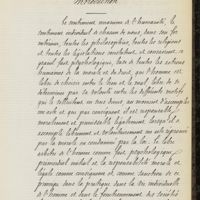 Introduction
Le sentiment unanime de l'humanité, le
sentiment individuel de chacun de nous, dans son for
intérieur, toutes les philosophies, toutes les religions
et toutes les législations constatent et consacrent ce
grand fait psychologique, base de toutes les notions
humaines de la morale et du droit, que l'homme est
libre de choisir entre le bien et le mal, libre de se
déterminer par sa volonté entre les différents motifs
qui le sollicitent en sens divers, au moment d'accomplir
un acte et que par conséquent il est responsable
moralement et punissable légalement lorsqu'il a
accompli librement et volontairement un acte réprouvé
par la morale ou condamné par la loi. Le libre
arbitre de l'homme comme fait psychologique
primordial initial et la responsabilité morale et
légale comme conséquence et comme sanction de ce
principe dans la pratique dans la vie individuelle
de l'homme et dans le fonctionnement des sociétés